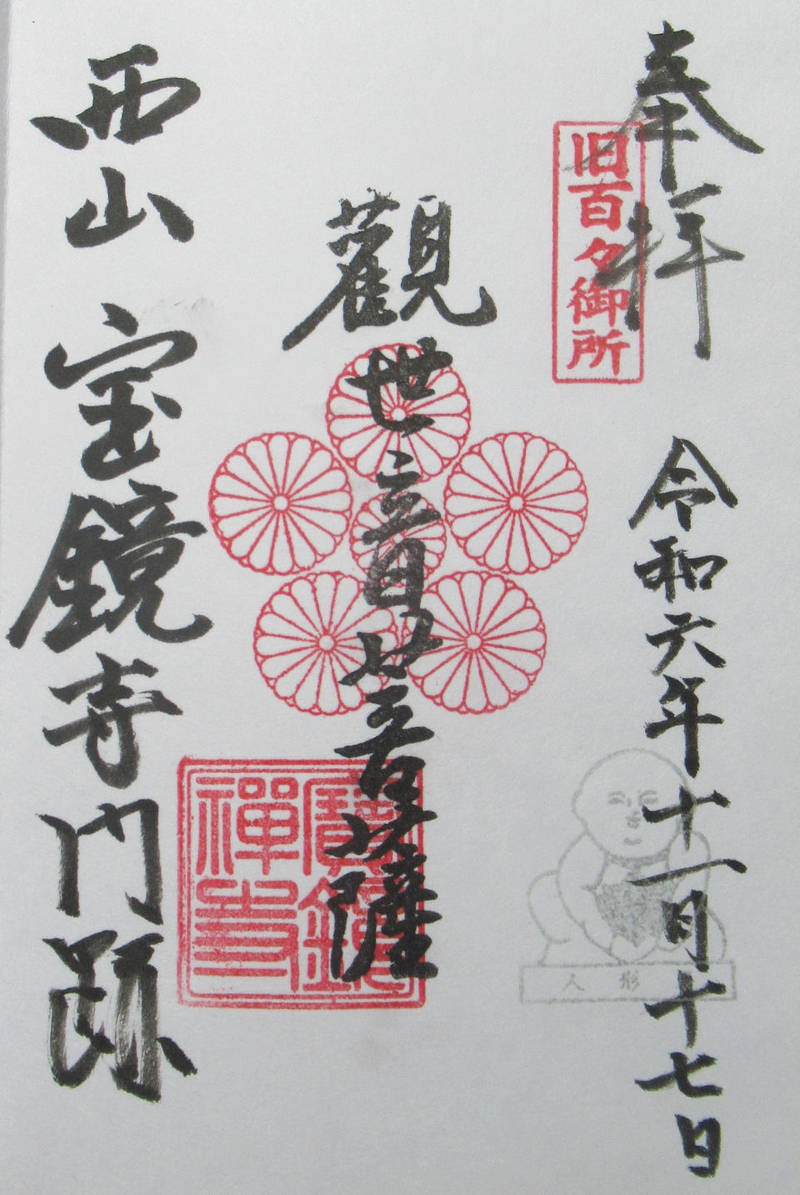 奉拝
旧百々御所
令和六年十一月十七日
人形
觀世音菩薩
寶鏡
禪寺
西山 宝鏡寺門跡